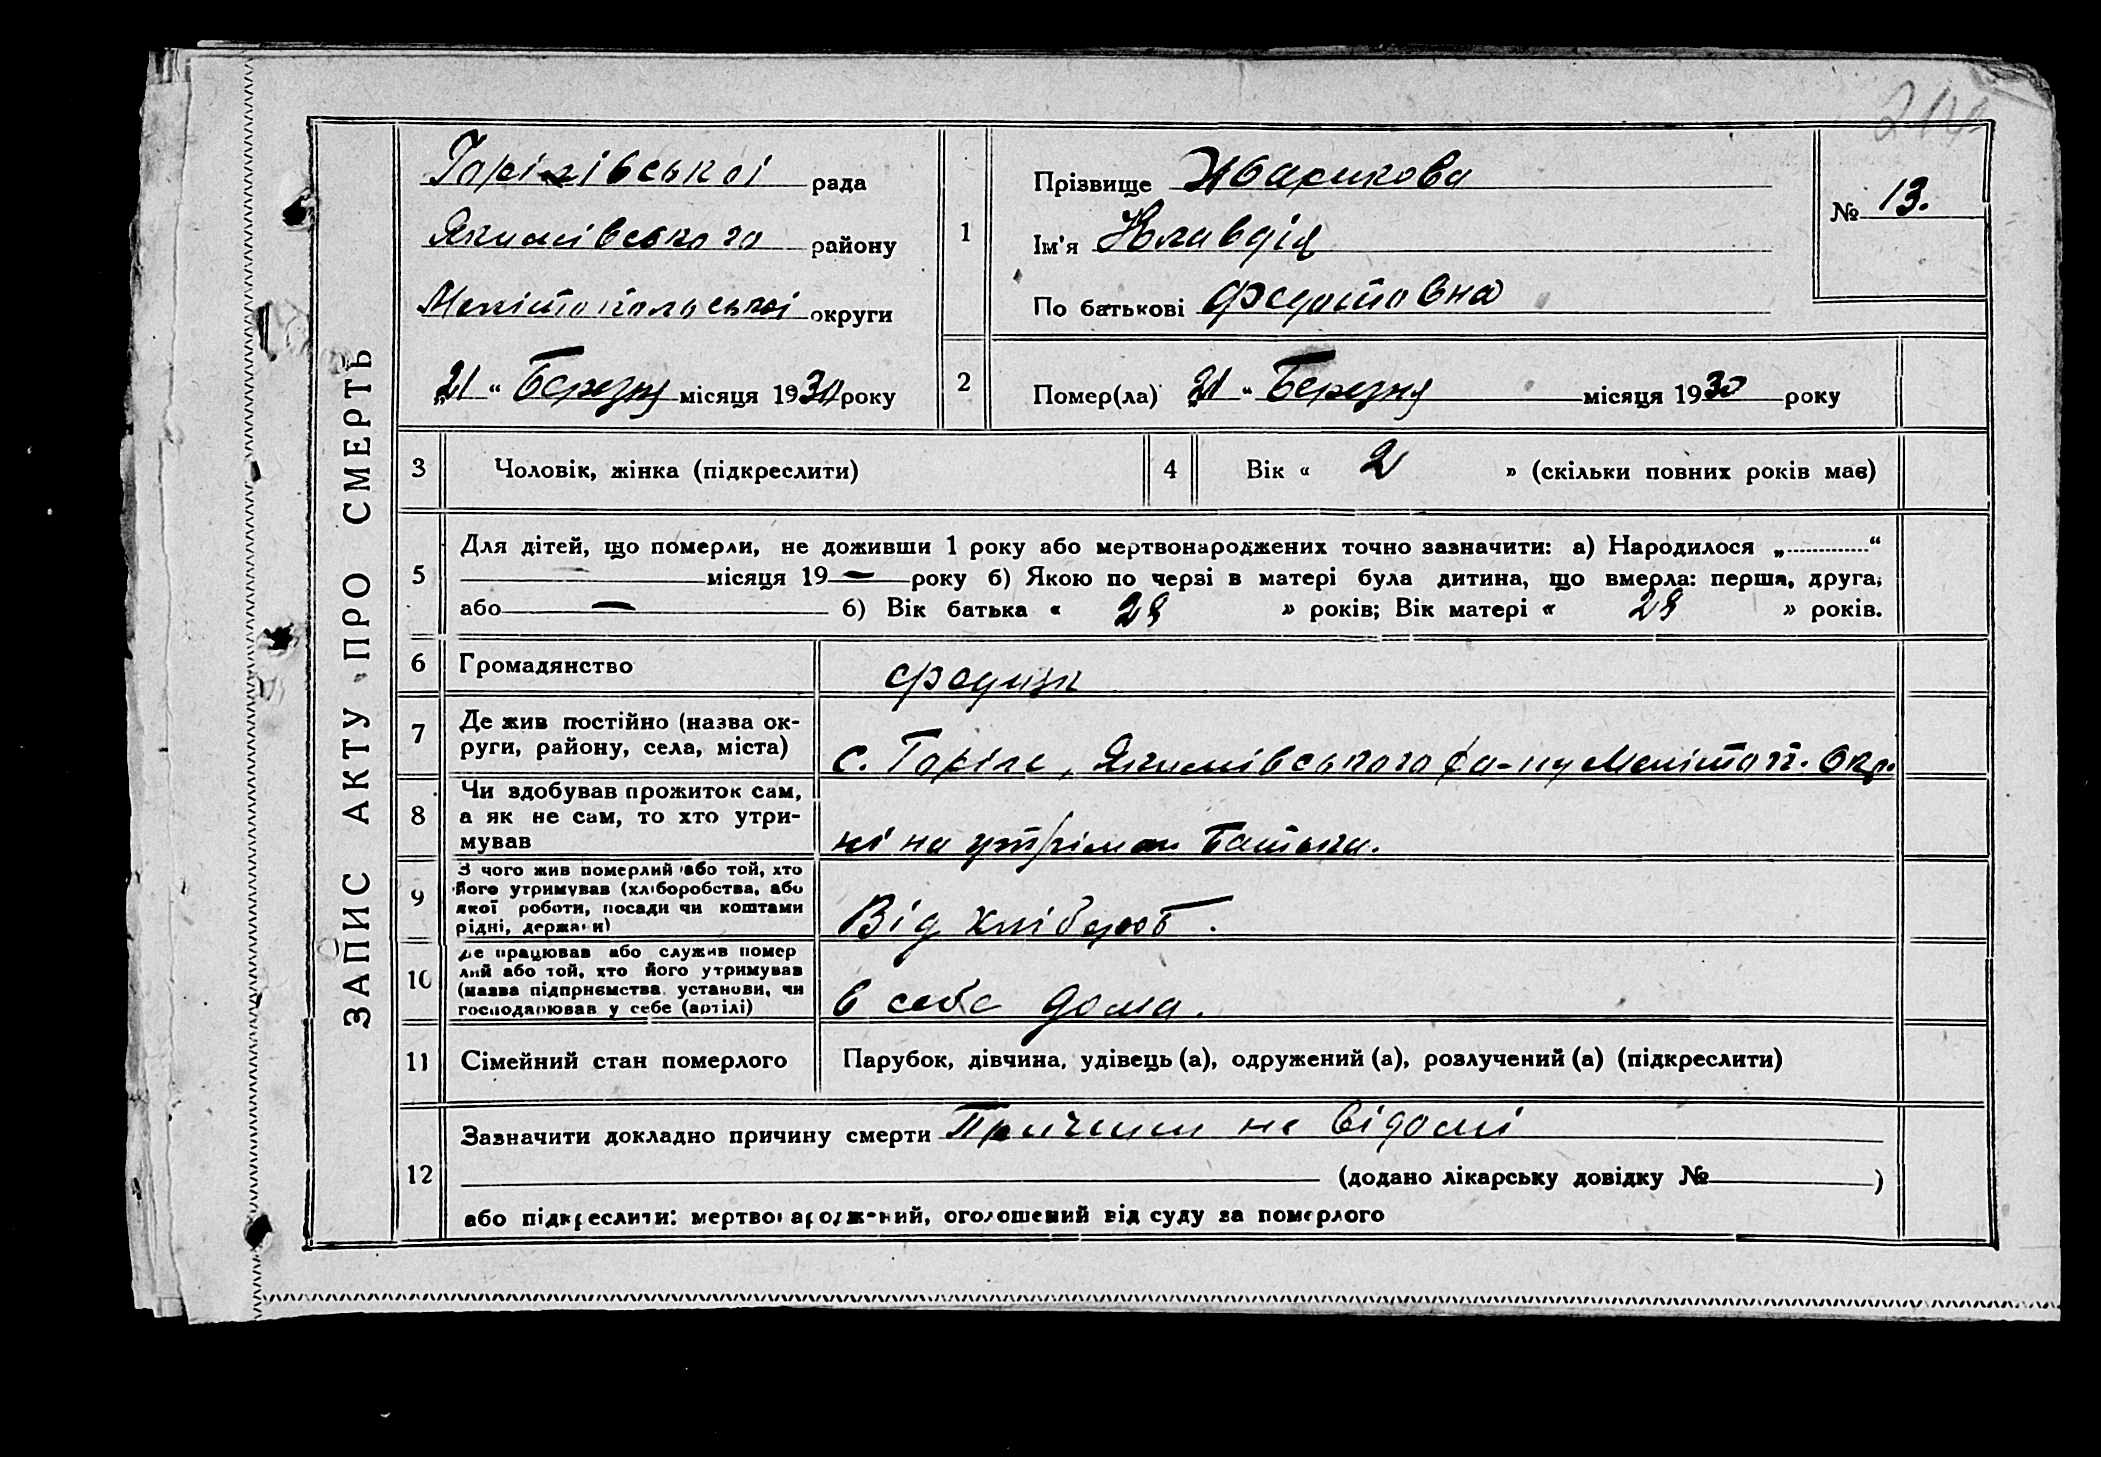 214
ЗАПИС АКТУ ПРО СМЕРТЬ
Горілівської рада
Якимівського району
Мелітопольської округи
„21“ Березня місяця 1930 року
1
Прізвище
Ім'я Клавдія
По батькові Федотовна
№ 13.
2
Помер(ла) „21“ Березня місяця 1930 року
3 Чоловік, жінка (підкреслити)
4 Вік « 2 » (скільки повних років має)
5 Для дітей, що померли, не доживши 1 року або мертвонароджених точно зазначити: а) Народилося „............“
— місяця 19 — року б) Якою по черзі в матері була дитина, що вмерла: перша, друга,
або — б) Вік батька « 28 » років; Вік матері « 28 » років.
6 Громадянство
7 Де жив постійно (назва ок-
руги, району, села, міста)
с. Горіле, Якимівського ра-ну Мелітоп. Окр.
8 Чи здобував прожиток сам,
а як не сам, то хто утри-
мував
ні на утріман Батька.
9 З чого жив померлий або той, хто
його утримував (хліборобства, або
якої роботи, посади чи коштами
рідні, держави)
Від хлібороб.
10 Де працював або служив помер
лий або той, хто його утримував
(назва підприємства установи, чи
господарював у себе (артілі)
в себе дома.
11 Сімейний стан померлого
Парубок, дівчина, удівець (а), одружений (а), розлучений (а) (підкреслити)
12 Зазначити докладно причину смерти Причини не відомі
(додано лікарську довідку № )
або підкреслити: мертвонароджений, оголошений від суду за померлого